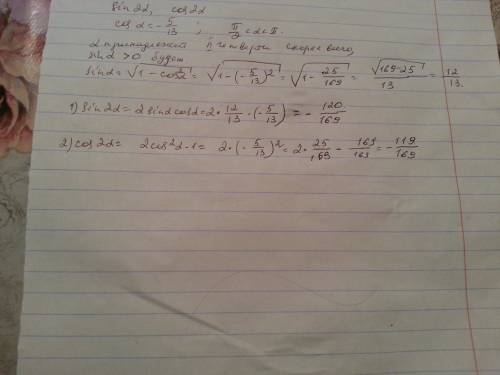 sin2α, cos2α
cosα = -5/13 ; π/2 < α < π.
α принадлежит II четверти скорее всего,
sinα > 0 будет
sinα = √(1 - cos²α) = √(1 - (-5/13)²) = √(1 - 25/169) = √(169-25)/13 = 12/13.
1) sin2α = 2sinαcosα = 2 · 12/13 · (-5/13) = -120/169
2) cos2α = 2cos²α-1 = 2·(-5/13)² = 2 · 25/169 - 169/169 = -119/169